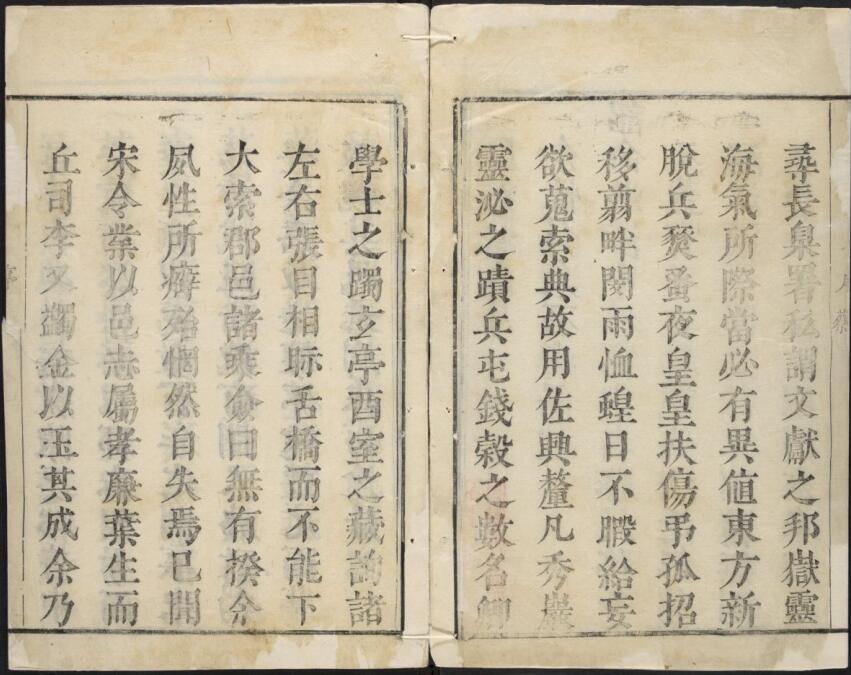 尋長臬署私謂文獻之邦嶽靈
海氣所際當必有異值東方新
脫兵燹蚤夜皇皇扶傷弔孤招
移翦畔閔雨恤蝗日不暇給妄
欲蒐索典故用佐興釐凡秀巖
靈泌之蹟兵屯錢穀之數名卿
學士之躅玄亭酉室之藏詢諸
左右張目相眎舌橋而不能下
大索郡邑諸乘僉曰無有揆余
夙性所癖殆惘然自失焉已聞
宋令業以邑志屬孝廉葉生而
丘司李又蠲金以玉其成余乃